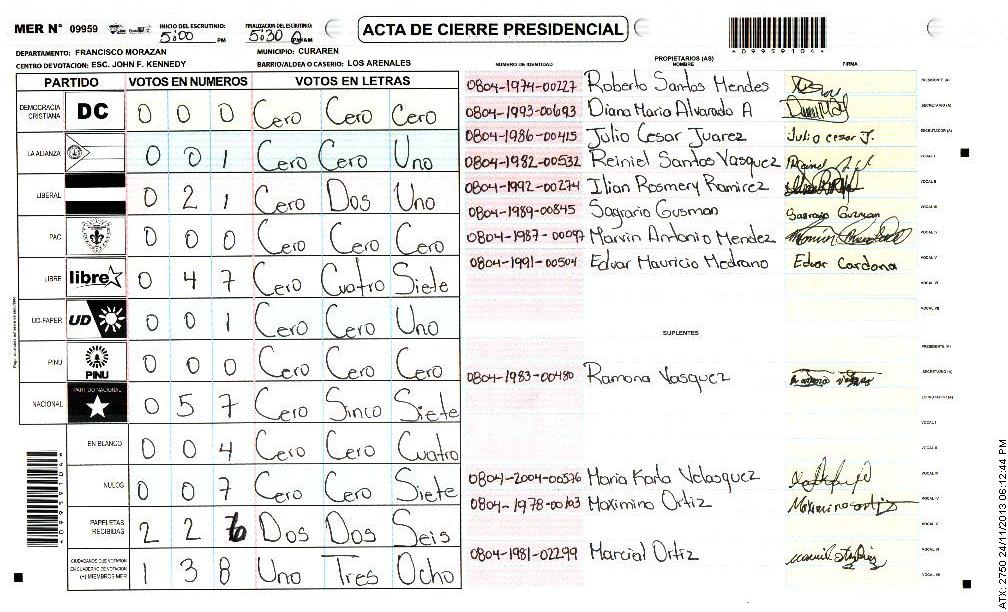 MER N° 09959
INICIO DEL ESCRUTINIO: 5:00 PM
FINALIZACION DEL ESCRUTINIO: 5:30 PM/AM
ACTA DE CIERRE PRESIDENCIAL
*0995910 4*
DEPARTAMENTO: FRANCISCO MORAZAN
MUNICIPIO: CURAREN
CENTRO DE VOTACION: ESC. JOHN F. KENNEDY
BARRIO/ALDEA O CASERIO: LOS ARENALES
PARTIDO VOTOS EN NUMEROS VOTOS EN LETRAS
DEMOCRACIA CRISTIANA DC 0 0 0 Cero Cero Cero
LA ALIANZA 0 0 1 Cero Cero Uno
LIBERAL 0 2 1 Cero Dos Uno
PAC 0 0 0 Cero Cero Cero
LIBRE libre 0 4 7 Cero Cuatro Siete
UD-FAPER UD 0 0 1 Cero Cero Uno
PINU PINU 0 0 0 Cero Cero Cero
NACIONAL PARTIDO NACIONAL 0 5 7 Cero Sinco Siete
EN BLANCO 0 0 4 Cero Cero Cuatro
NULOS 0 0 7 Cero Cero Siete
PAPELETAS RECIBIDAS 2 2 6 Dos Dos Seis
CIUDADANOS QUE VOTARON EN CUADERNO DE VOTACION (+) MIEMBROS MER 1 3 8 Uno Tres Ocho
PROPIETARIOS (AS)
NUMERO DE IDENTIDAD NOMBRE FIRMA
0804-1974-00227 Roberto Santos Mendes PRESIDENTE (A)
0804-1993-00693 Diana Maria Alvarado A SECRETARIO (A)
0804-1986-00415 Julio Cesar Juarez Julio cesar J. ESCRUTADOR (A)
0804-1982-00532 Reiniel Santos Vasquez VOCAL I
0804-1992-00274 Ilian Rosmery Ramirez VOCAL II
0804-1989-00845 Sagrario Gusman Sagrario Guzman VOCAL III
0804-1987-00097 Marvin Antonio Mendez VOCAL IV
0804-1991-00504 Edvar Mauricio Medrano Edvar Cardona VOCAL V
VOCAL VI
VOCAL VII
SUPLENTES
PRESIDENTE (A)
0804-1983-00480 Ramona Vasquez SECRETARIO (A)
ESCRUTADOR (A)
VOCAL I
VOCAL II
0804-2004-00576 Maria Karla Velasquez VOCAL III
0804-1978-00103 Maximino Ortiz Maximino ortiz VOCAL IV
VOCAL V
0804-1981-02299 Marcial Ortiz VOCAL VI
VOCAL VII
ATX: 2750 24/11/2013 06:12:44 PM